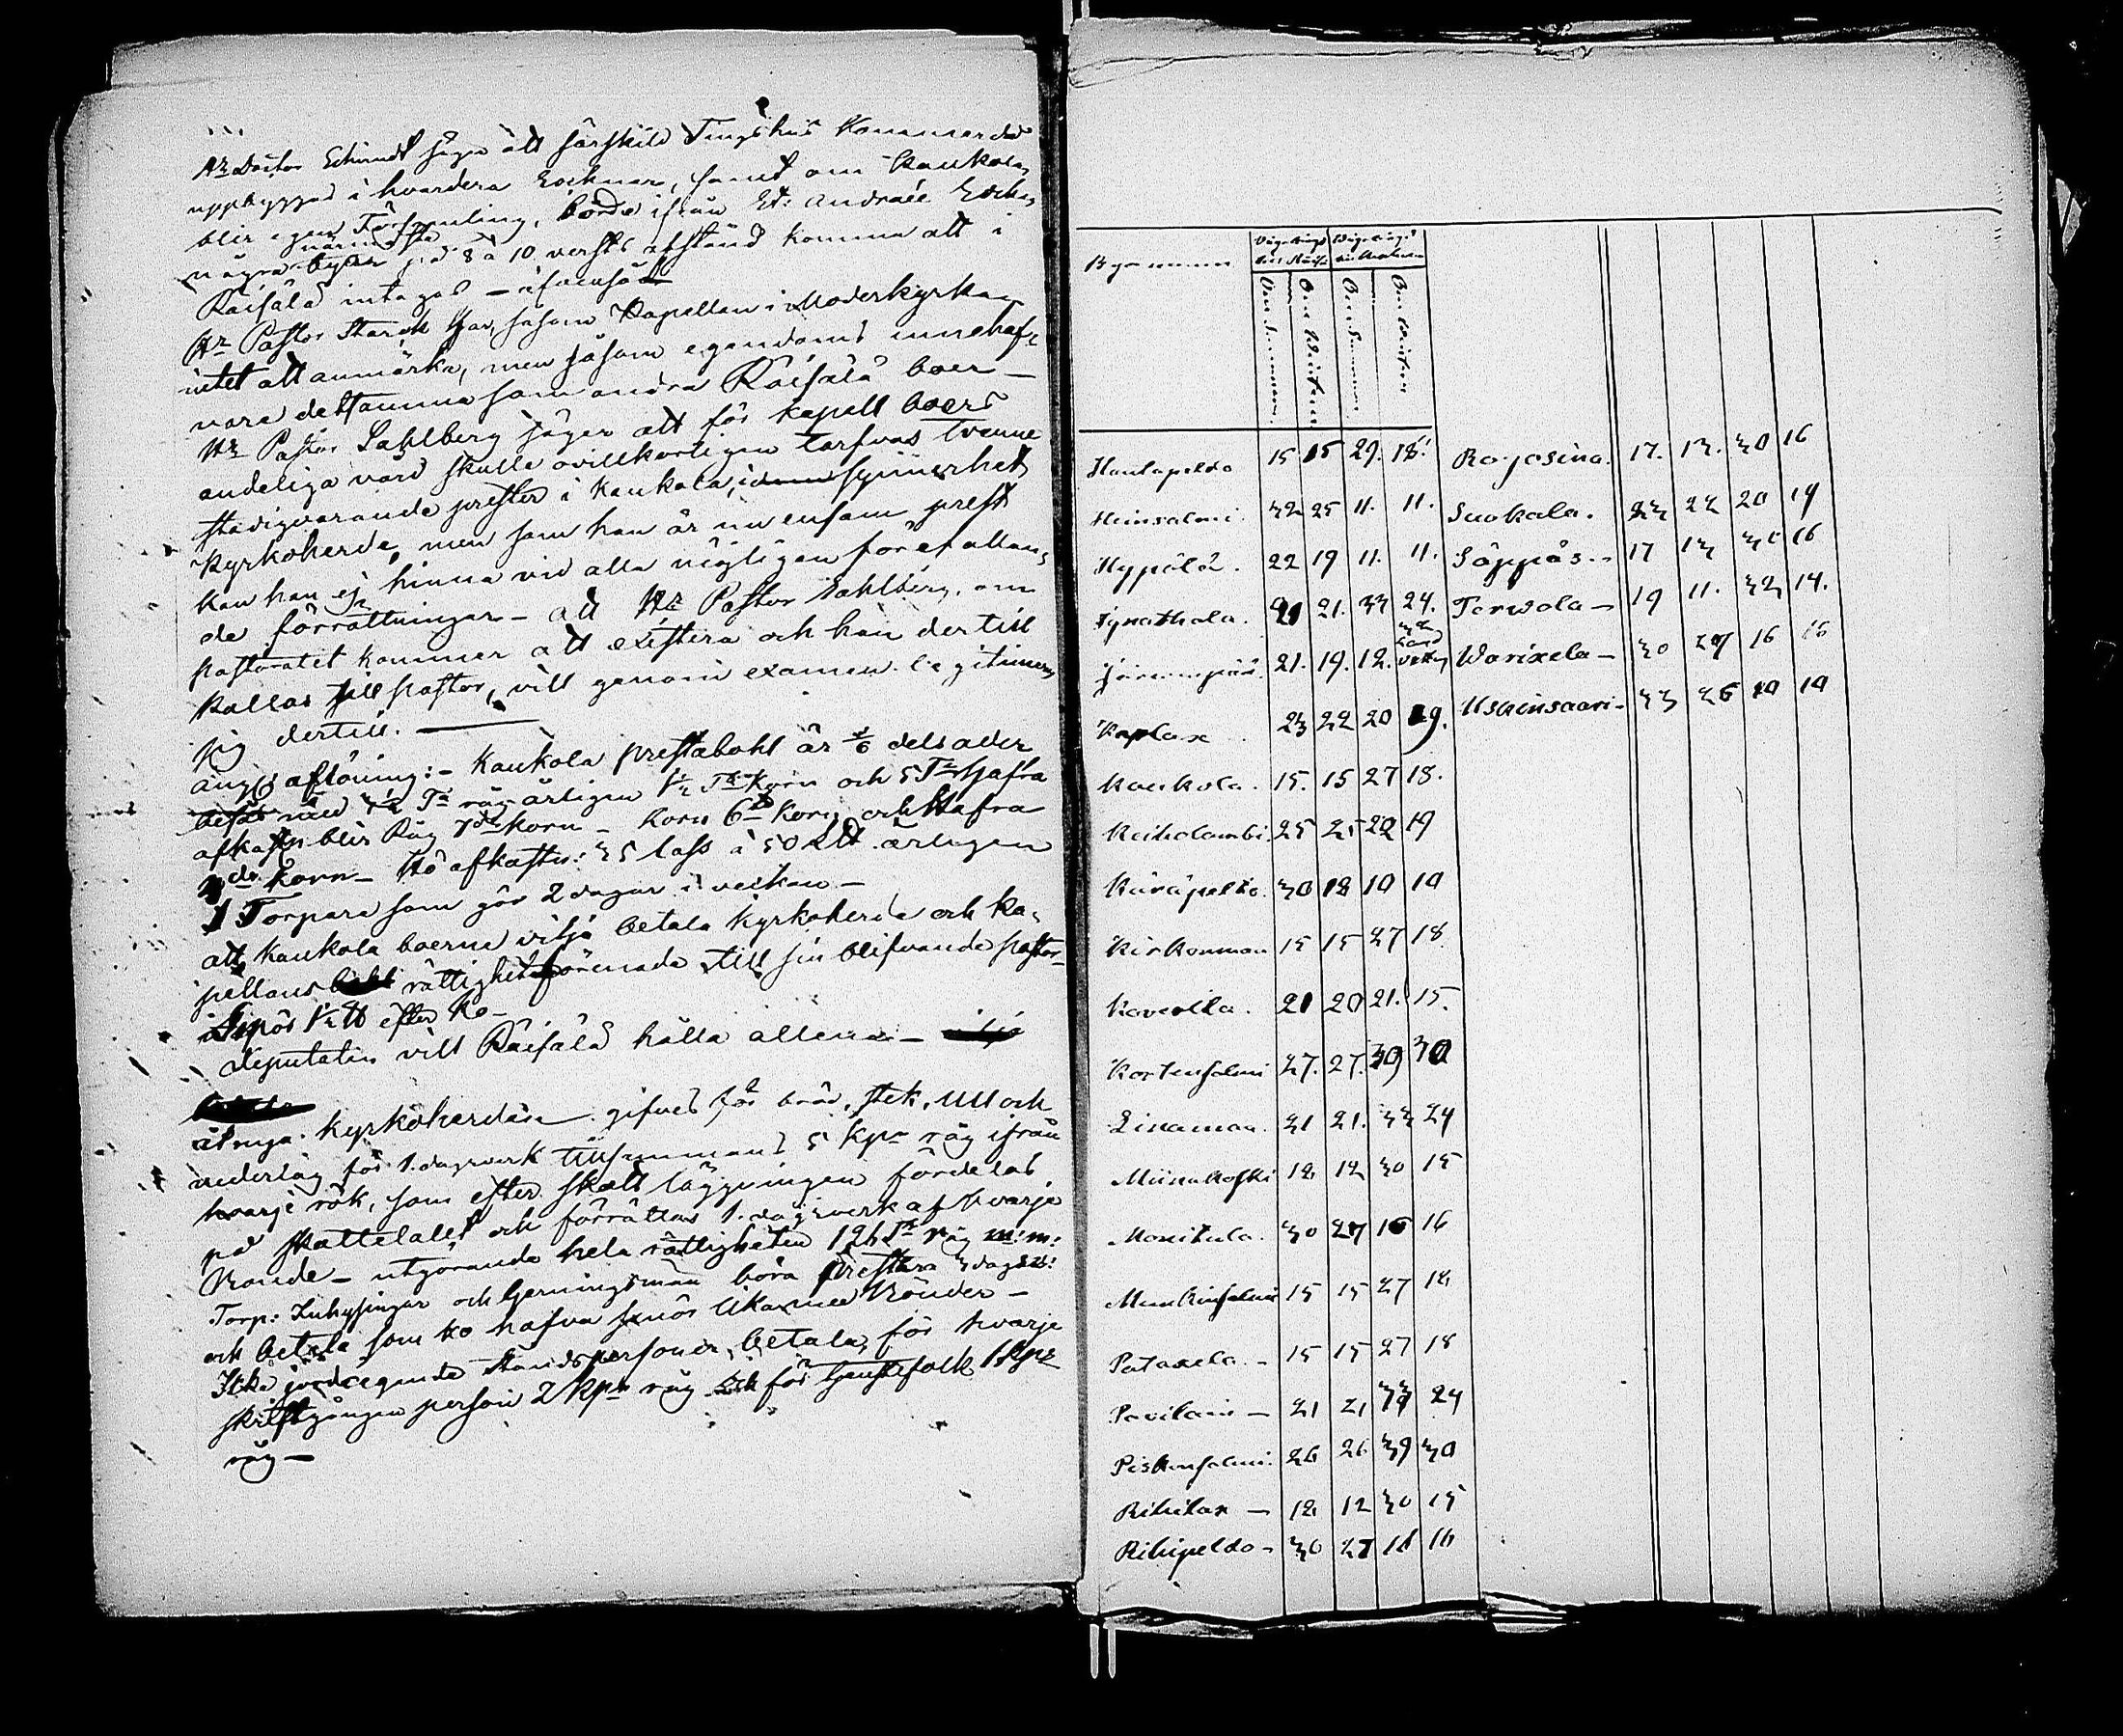 Hr Doctor Schmidt säger att särskild Tingshus Kommer det
uppbyggas i hvardera Socknar, samt om Kaukola
blir egen Församling, borde ifrån St: Andraee Sockn
några närmaste byar på 8 à 10 versts afstånd komma att i
Räisälä intagas –
Hr Pastor Starck har, såsom Kapellan i Moderkyrkan
intet att anmärka, men såsom egendoms innehaf-
vare detsamma som andra Räisälä boer –
Hr Pastor Sahlberg säger att för kapell boers
andeliga vård skulle ovillkorligen tarfvas tvenne
stadigvarande prester i Kaukola, synnerhet
Kyrkoherde, men som han är nu ensam prest
kan han ej hinna vid alla möjligen förefallan-
de förrättningar – att Hr Pastor Sahlberg, om
pastoratet kommer att existera och han dertill
kallas till pastor, vill genom examen legitimera
sig dertill. —
ang: aflöning: – Kaukola prestabohl är 1/6 dels
med Tr råg årligen 1/2 Tr Korn och 5 Tr Hafra
afkasten blir Råg 7de korn – Korn 6te Korn och Hafra
3de Korn – Hö afkasten: 35 lass à 50 LU årligen
1 Torpare som gör 2 dagar i veckan –
att Kaukola boerne vilja betala Kyrkoherde och ka-
pellans rättighet förenade till sin blifvande pastor –
Smör 1/2 U efter Ko –
Deputatin vill Räisälä hålla allena –
åt nya Kyrkoherden gifves för bröd, stek, Ull och
underlag för 1. dagsverk tillsammans 5 Kpr råg ifrån
hvarje rök, som efter skattläggningen fördelas
på skattetalet och förrättas 1. dagsverk af hvarje
Bonde – utgörande hela rättigheten 126 Tr råg m: m:
Torp: Inhysingar och Gerningsmän böra prestera 3 dagsv:
och betala som ko hafva smör lika med Bönder –
Icke jordegande Stånds personer, betala, för hvarje
skriftgången person 2 Kpr råg och för tjenstefolk 1 Kpr
råg –
Byarnaman
Om Sommaren. Om Vintern Om Sommaren Om Vintern
Haulapeldo 15 15 29. 18. Rojosina. 17. 17. 30 16
Heinsalmi. 32 25 11. 11. Suokala. 23 22 20 19
Hyppälä. 22 19 11. 11. Säppäs. – 17 13 16
Ignathala. 21 21. 33 24. Terwola – 19 11. 32 14.
Järvenpää. 21. 19. 12. Warixela – 30 27 16 16
Kaplax. 23 22 20 19. Uskinsaari – 33 26 10 10
Kaukola. 15. 15 27 18.
Keiholambi. 25 25 20 19
Känäpelto. 30 18 10 10
Kirkonman 15 15 27 18
Koverila. 21 20 21. 15.
Kortensalmi 27. 27. 39 30
Linaman. 21 21. 33 24
Miinakoski 12 12 30 15
Monitula. 30 27 16 16
Munkinsalmi 15 15 27 18
Pataxela. – 15 15 27 18
Pavilain – 21 21 33 24
Piskonsalmi. 26 26 39 30
Riihilax – 12 12 30 15
Riihipeldo – 30 27 16 16